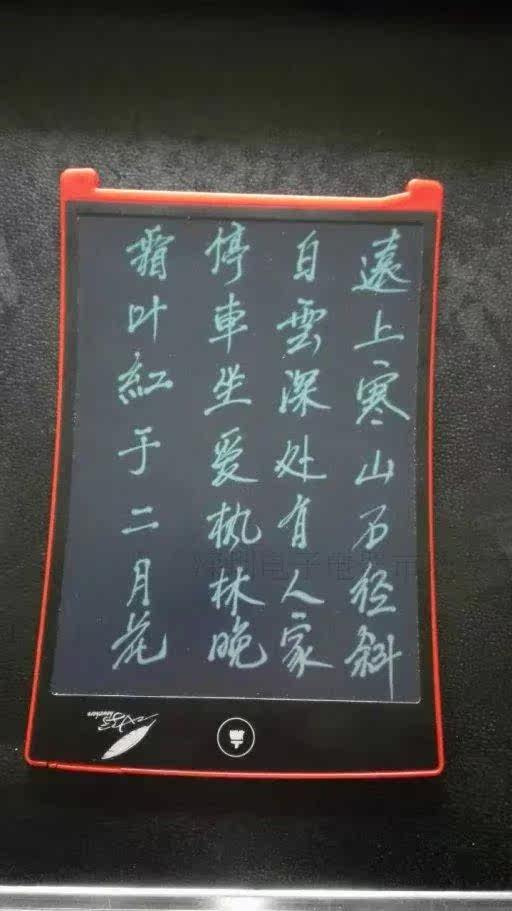 遠上寒山石径斜
白雲深处有人家
停車坐爱枫林晚
霜叶紅于二月花